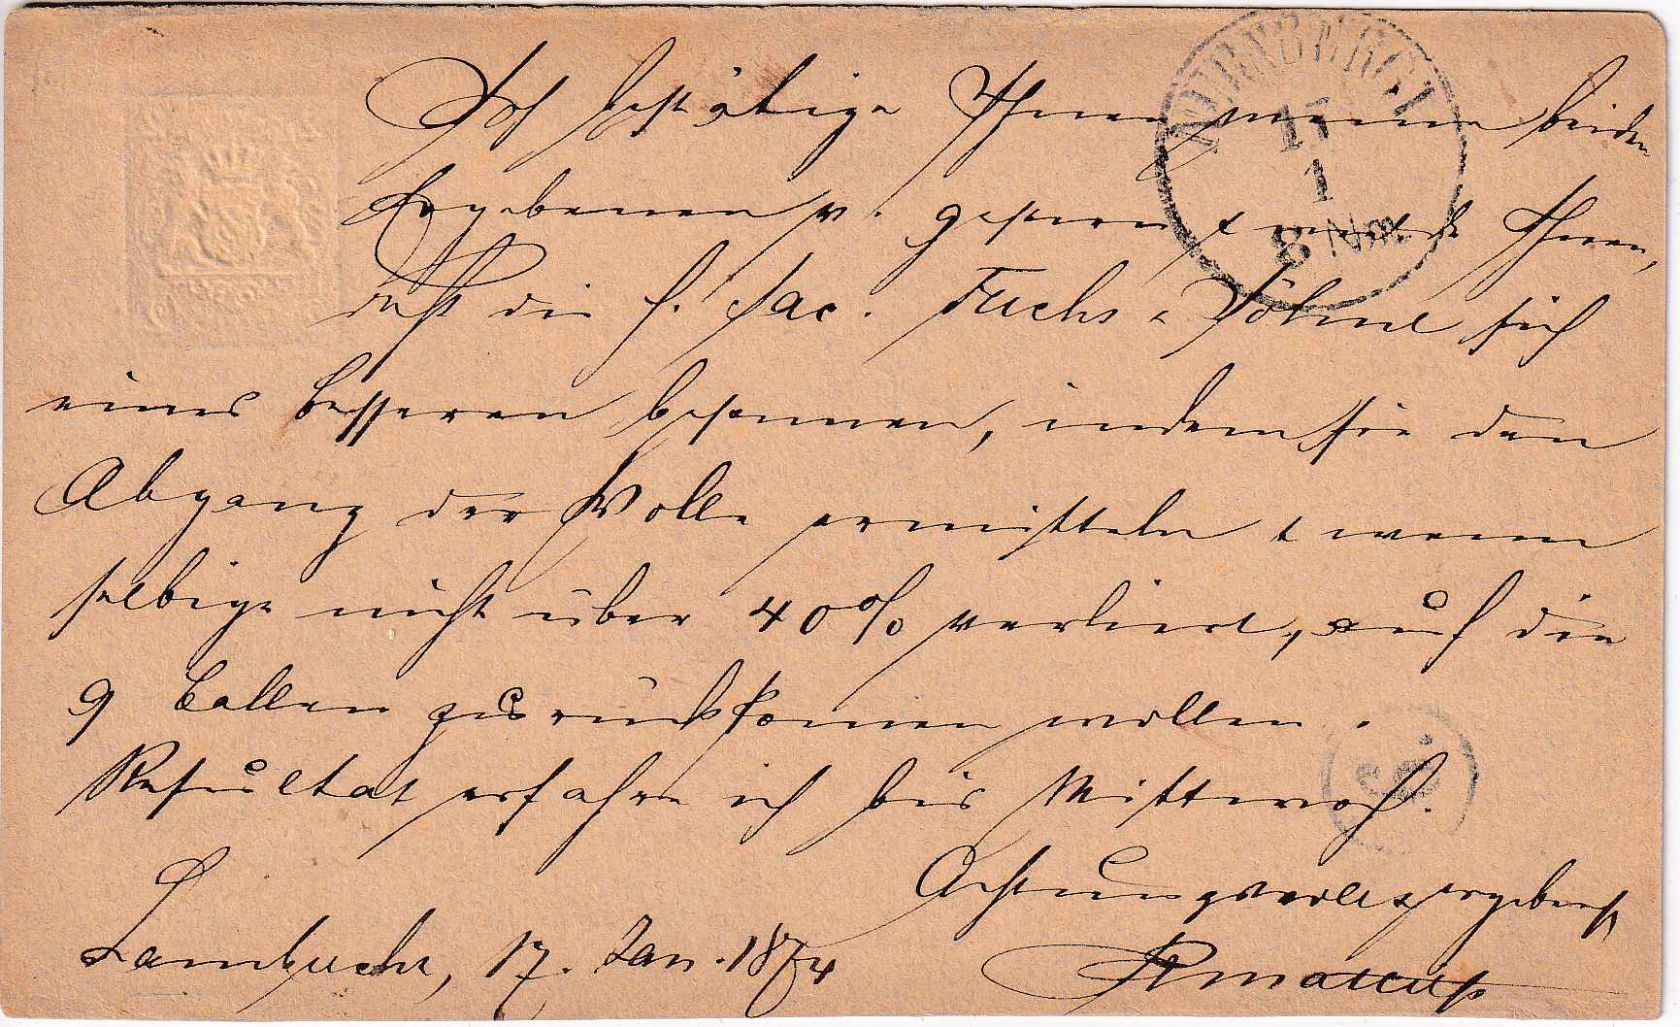 Ich bestätige Ihnen meine beiden
Ergebenen v. gestern & melde Ihnen,
daß die H. Jac. Fuchs & Söhne sich
eines besseren besonnen, indem sie den
Abgang der Wolle ermitteln & wenn
selbige nicht über 40% verliert, auf die
9 Ballen zurückkommen wollen.
Resultat erfahre ich bis Mittwoch.
Achtungsvollst ergebenst
Lambrecht, 17. Jan. 1874
NÜRNBERG I
17
1
8 Nm.